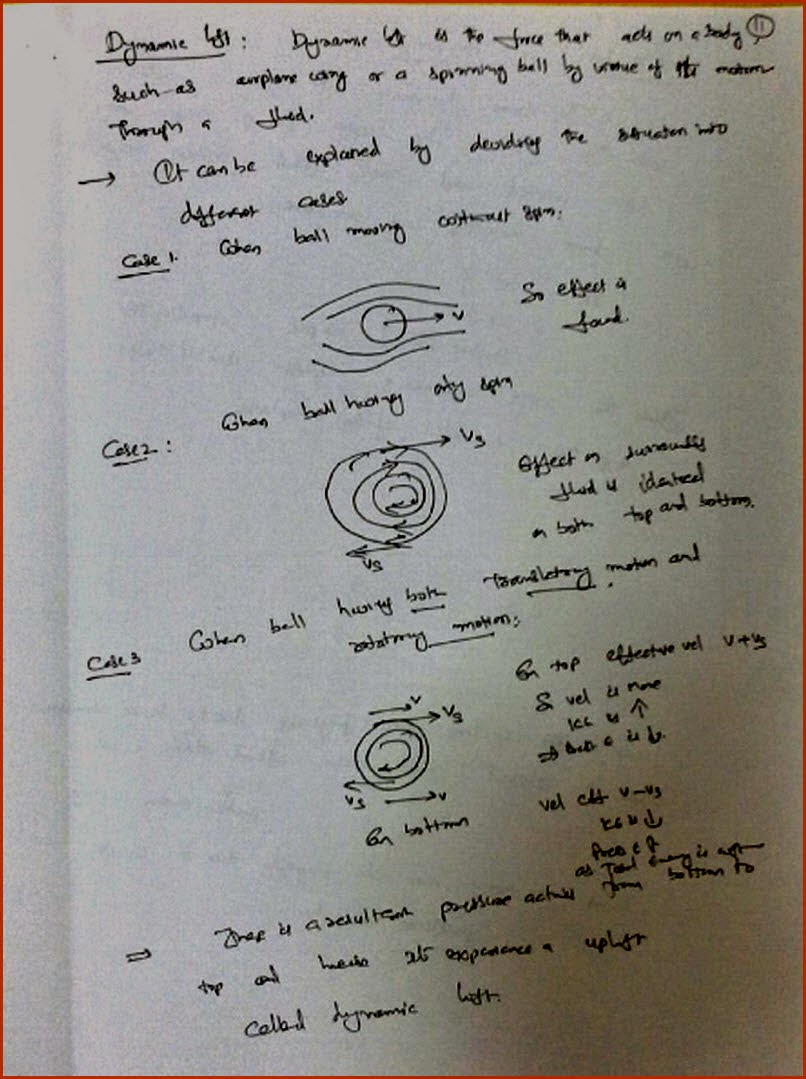 Dynamic lift : Dynamic lift is the force that acts on a body, 11
Such as airplane wing or a spinning ball by virtue of its motion
Through a fluid.
→ It can be explained by deviding the situation into
different cases
Case 1. When ball moving without spin.
So effect is
found.
V
Case 2 : When ball having only spin
Vs
Effect on surrounding
fluid is identical
on both top and bottom.
Vs
Case 3 When ball having both Translatory motion and
rotatory motion:
On top effective vel V+Vs
So vel is more
KE is ↑
⇒ is ↓.
V
Vs
Vs
V
On bottom
vel eff V-Vs
KE is ↓
Pres ↑
as Total Energy is
⇒ There is a resultant pressure acting from bottom to
top and hence it experience a uplift
Called dynamic lift.